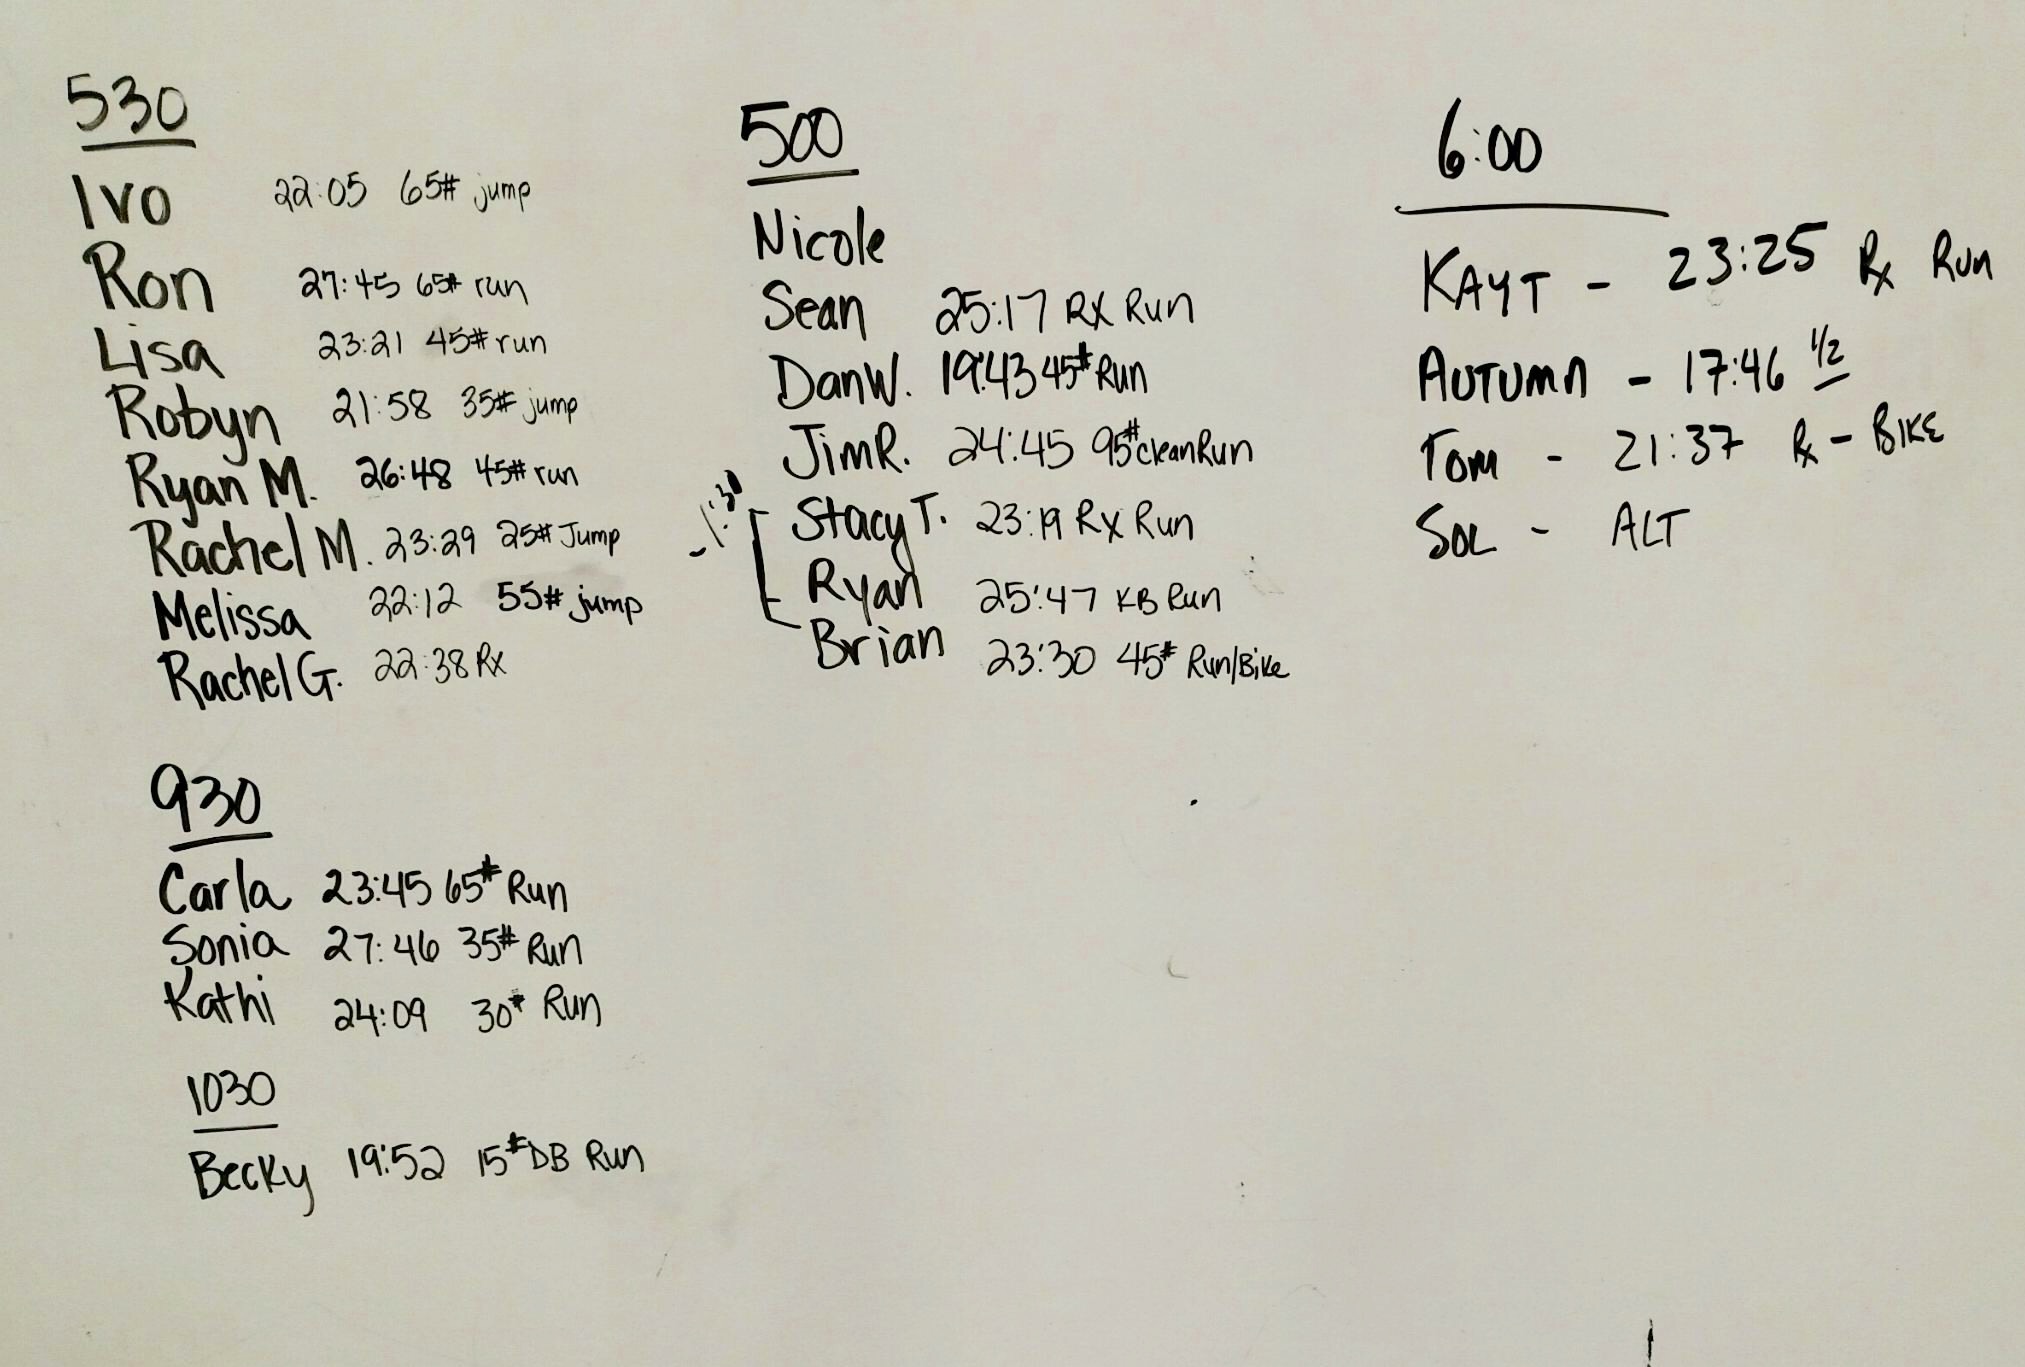 530
Ivo 22:05 65# jump
Ron 27:45 65# run
Lisa 23:21 45# run
Robyn 21:58 35# jump
Ryan M. 26:48 45# run
Rachel M. 23:29 25# Jump
Melissa 22:12 55# jump
Rachel G. 22:38 Rx
930
Carla 23:45 65# Run
Sonia 27:46 35# Run
Kathi 24:09 30# Run
1030
Becky 19:52 15# DB Run
500
Nicole
Sean 25:17 RX Run
Dan W. 19:43 45# Run
Jim R. 24:45 95# clean Run
-1:30
Stacy T. 23:19 RX Run
Ryan 25:47 KB Run
Brian 23:30 45# Run/Bike
6:00
KAYT - 23:25 Rx Run
AUTUMN - 17:46 1/2
Tom - 21:37 Rx - BIKE
SOL - ALT